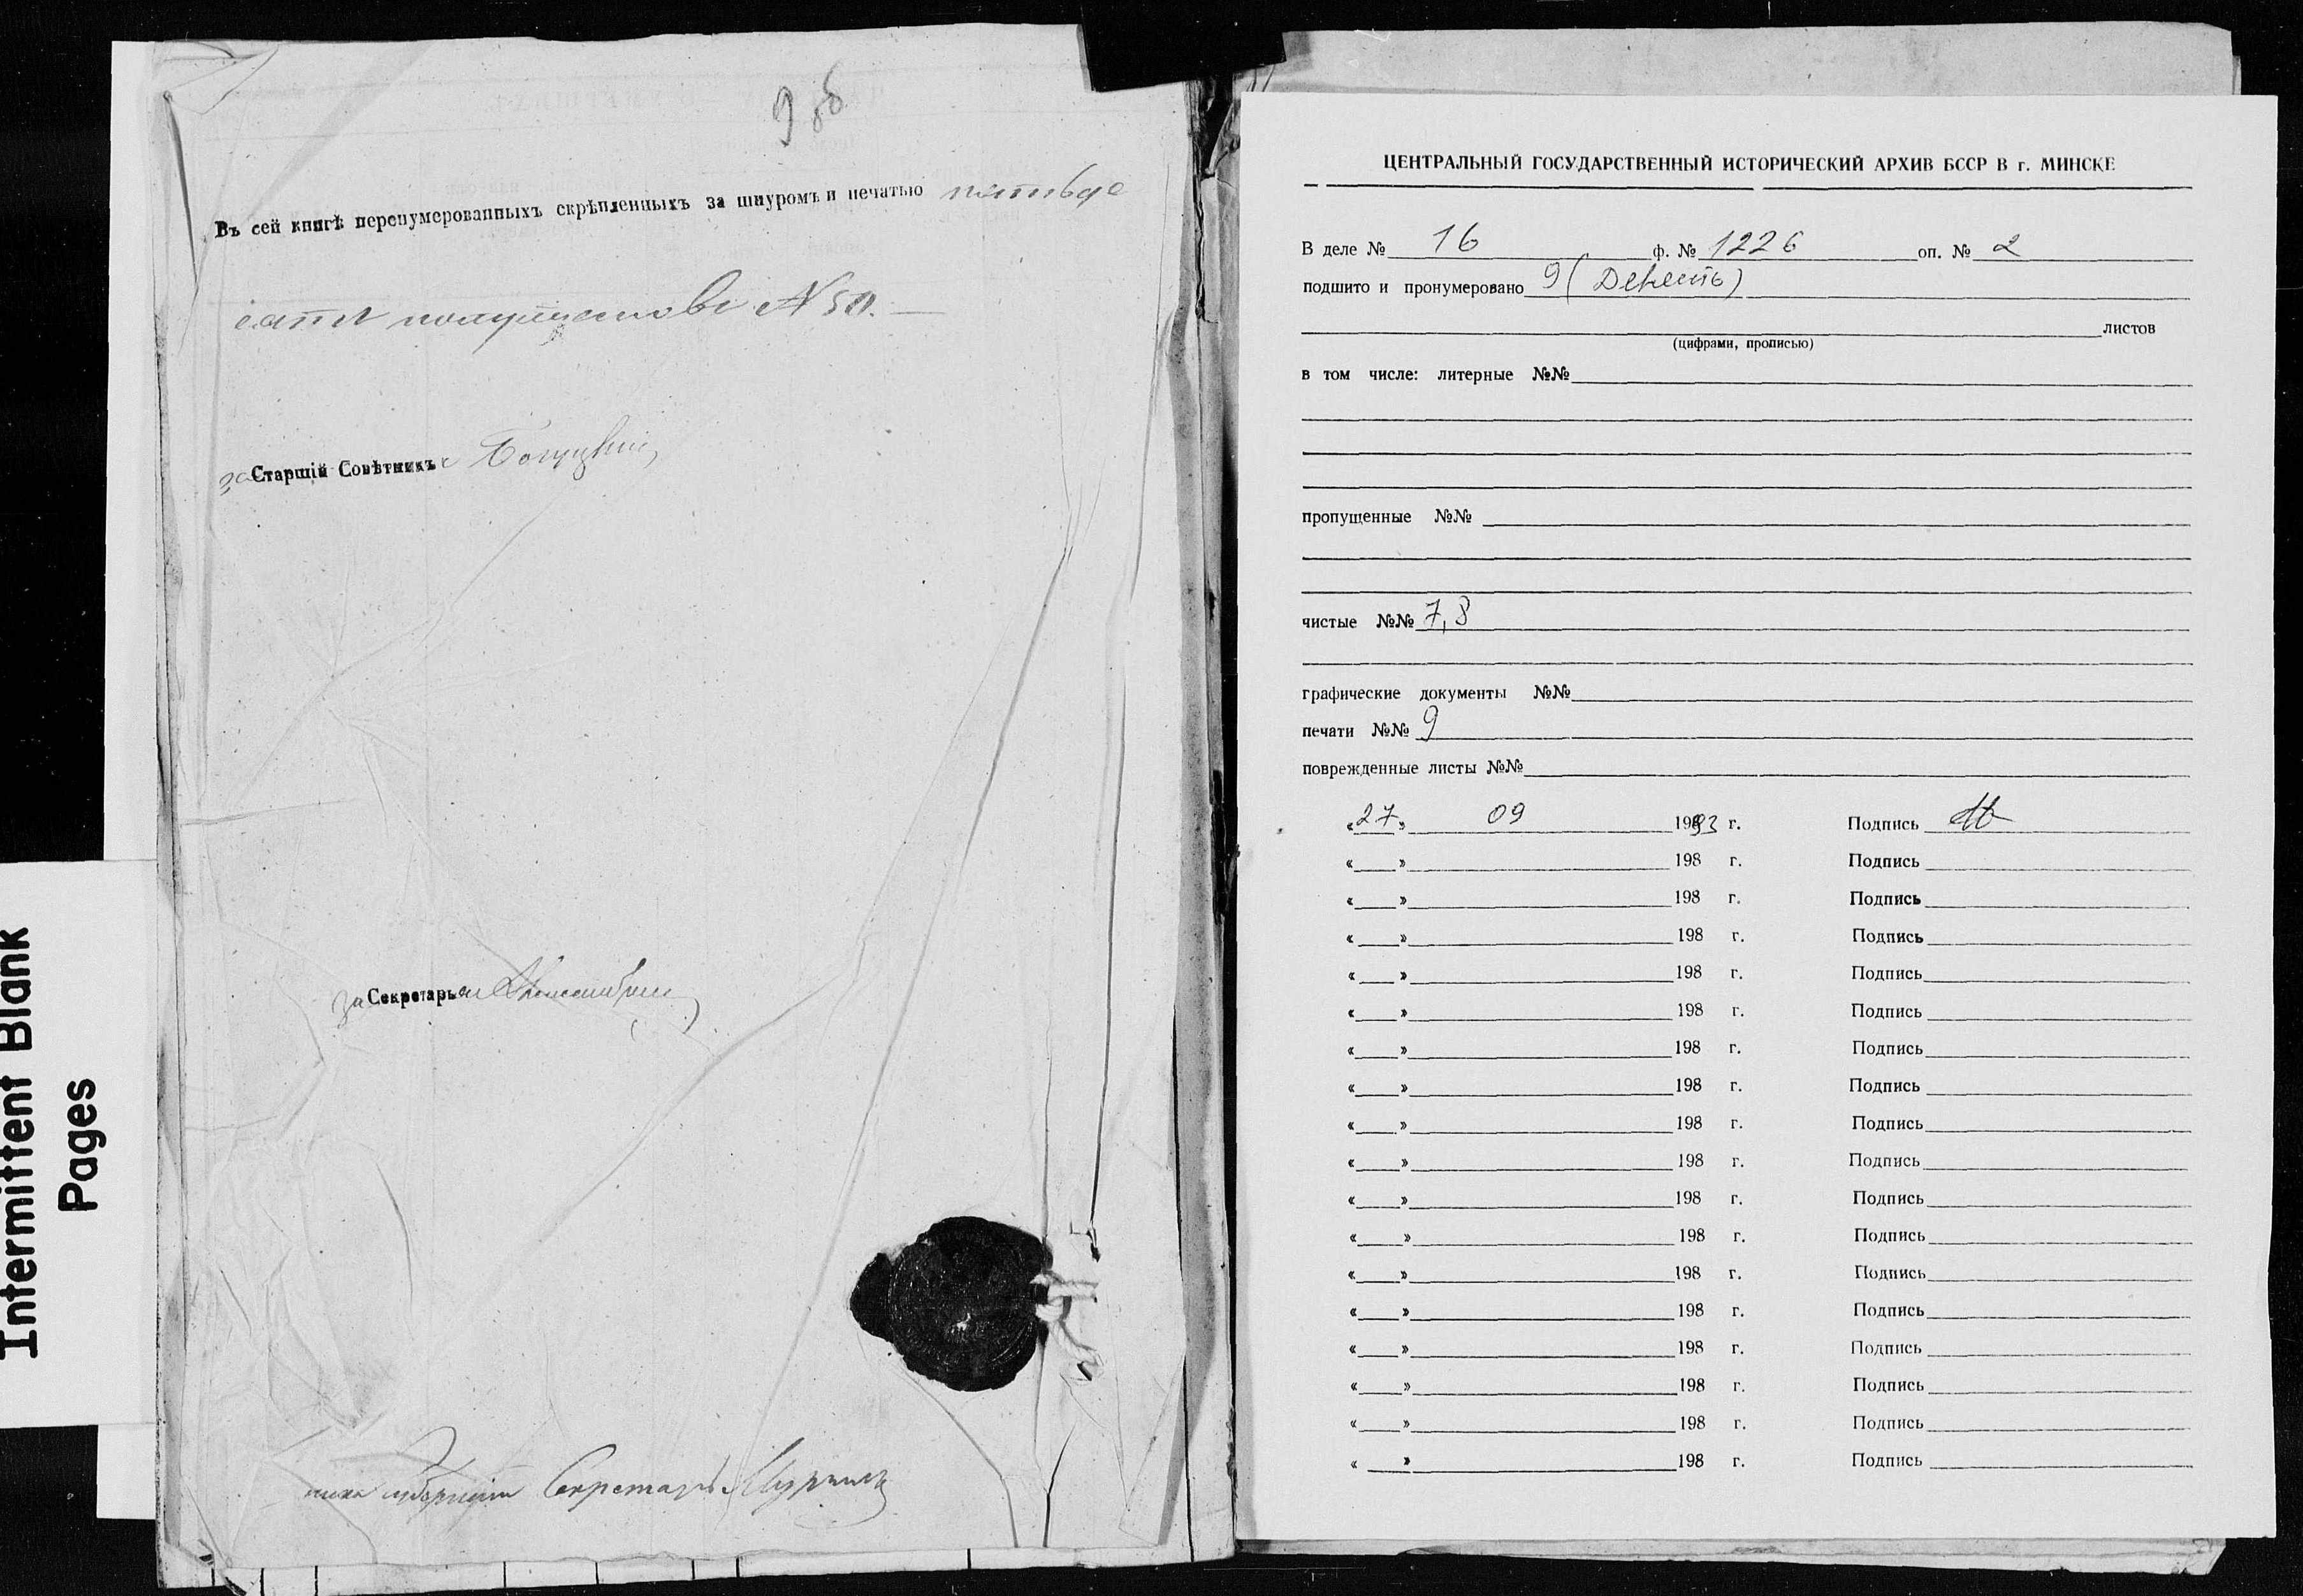 Intermittent Blank
Pages
9 об
Въ сей книгѣ перенумерованныхъ скрѣпленныхъ за шнуромъ и печатью пятьде
сятъ полулистовъ N 50.
за Старшій Совѣтникъ
за Секретарь
Секретарь
ЦЕНТРАЛЬНЫЙ ГОСУДАРСТВЕННЫЙ ИСТОРИЧЕСКИЙ АРХИВ БССР В г. МИНСКЕ
В деле № 16 ф. № 1226 оп. № 2
подшито и пронумеровано 9 (Девять)
листов
(цифрами, прописью)
в том числе: литерные №№
пропущенные №№
чистые №№ 7, 8
графические документы №№
печати №№ 9
поврежденные листы №№
«27» 09 1993 г. Подпись
« » 198 г. Подпись
« » 198 г. Подпись
« » 198 г. Подпись
« » 198 г. Подпись
« » 198 г. Подпись
« » 198 г. Подпись
« » 198 г. Подпись
« » 198 г. Подпись
« » 198 г. Подпись
« » 198 г. Подпись
« » 198 г. Подпись
« » 198 г. Подпись
« » 198 г. Подпись
« » 198 г. Подпись
« » 198 г. Подпись
« » 198 г. Подпись
« » 198 г. Подпись